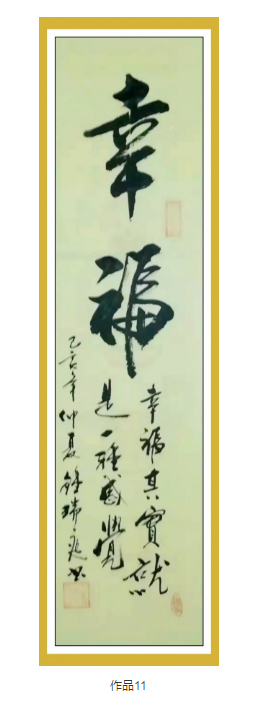 幸福
幸福其實就
是一種感覺
亥年仲夏 瑞 書
作品11